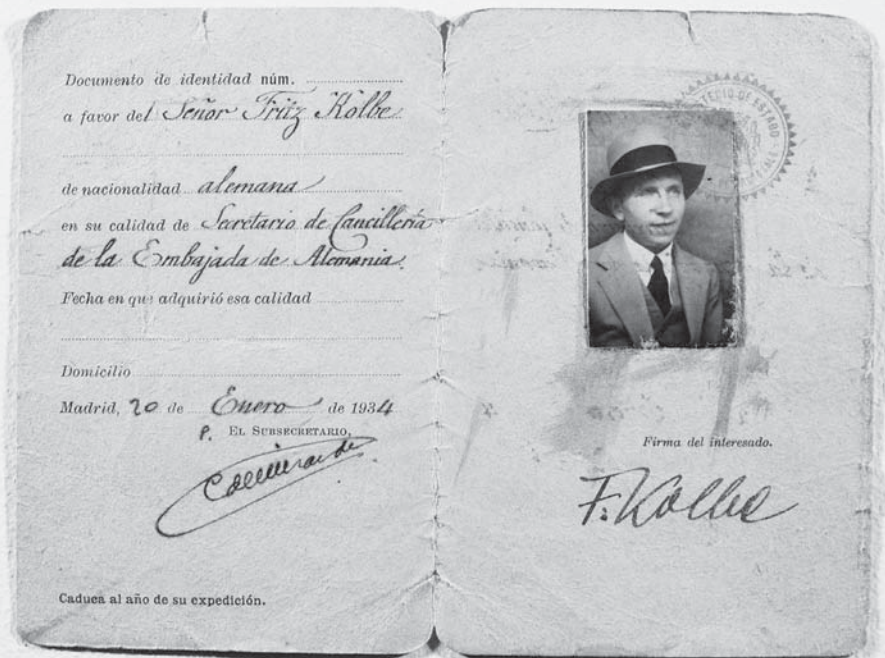 Documento de identidad núm.
a favor del Señor Fritz Kolbe
de nacionalidad alemana
en su calidad de Secretario de Cancillería
de la Embajada de Alemania.
Fecha en que adquirió esa calidad
Domicilio
Madrid, 20 de Enero de 1934
P. EL SUBSECRETARIO,
Caduca al año de su expedición.
DE ESTADO
Firma del interesado.
F. Kolbe